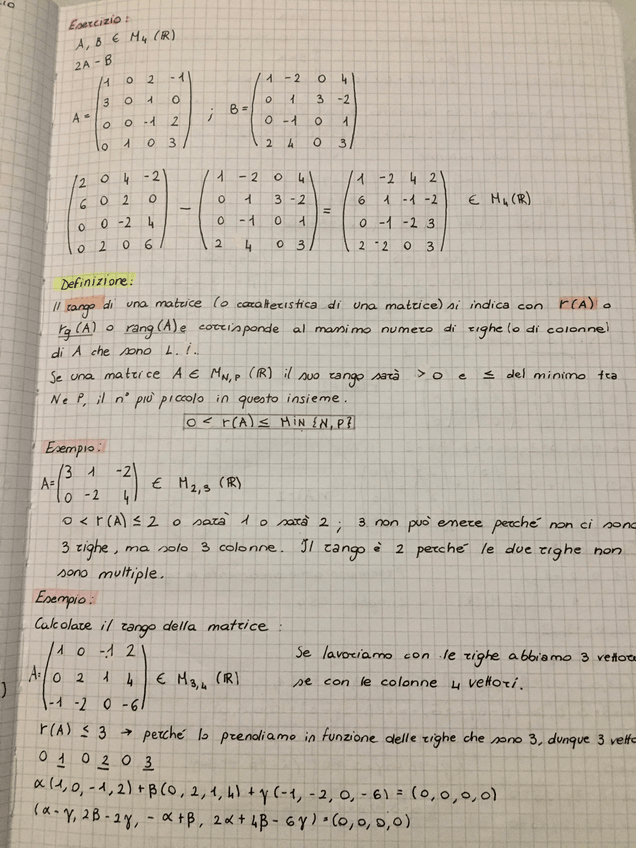 Esercizio:
A, B ∈ M₄ (ℝ)
2A - B
A = (1 0 2 -1 ; B = (1 -2 0 4
3 0 1 0 0 1 3 -2
0 0 -1 2 0 -1 0 1
0 1 0 3) 2 4 0 3)
(2 0 4 -2 - (1 -2 0 4 = (1 -2 4 2
6 0 2 0 0 1 3 -2 6 1 -1 -2 ∈ M₄(ℝ)
0 0 -2 4 0 -1 0 1 0 -1 -2 3
0 2 0 6) 2 4 0 3) 2 -2 0 3)
Definizione:
Il rango di una matrice (o caratteristica di una matrice) si indica con r(A) o
rg(A) o rang(A) e corrisponde al massimo numero di righe (o di colonne)
di A che sono L. i..
Se una matrice A ∈ M_N,P (ℝ) il suo rango sarà > 0 e ≤ del minimo tra
N e P, il n° più piccolo in questo insieme.
0 < r(A) ≤ Min {N, P}
Esempio:
A = (3 1 -2
0 -2 4) ∈ M₂,₃ (ℝ)
0 < r(A) ≤ 2 o sarà 1 o sarà 2 ; 3 non può essere perché non ci sono
3 righe, ma solo 3 colonne. Il rango è 2 perché le due righe non
sono multiple.
Esempio:
Calcolare il rango della matrice :
A = (1 0 -1 2 Se lavoriamo con le righe abbiamo 3 vettori
0 2 1 4 ∈ M₃,₄ (ℝ) se con le colonne 4 vettori.
-1 -2 0 -6)
r(A) ≤ 3 → perché lo prendiamo in funzione delle righe che sono 3, dunque 3 vetto
0 1 0 2 0 3
α(1, 0, -1, 2) + β(0, 2, 1, 4) + γ(-1, -2, 0, -6) = (0, 0, 0, 0)
(α - γ, 2β - 2γ, - α + β, 2α + 4β - 6γ) = (0, 0, 0, 0)